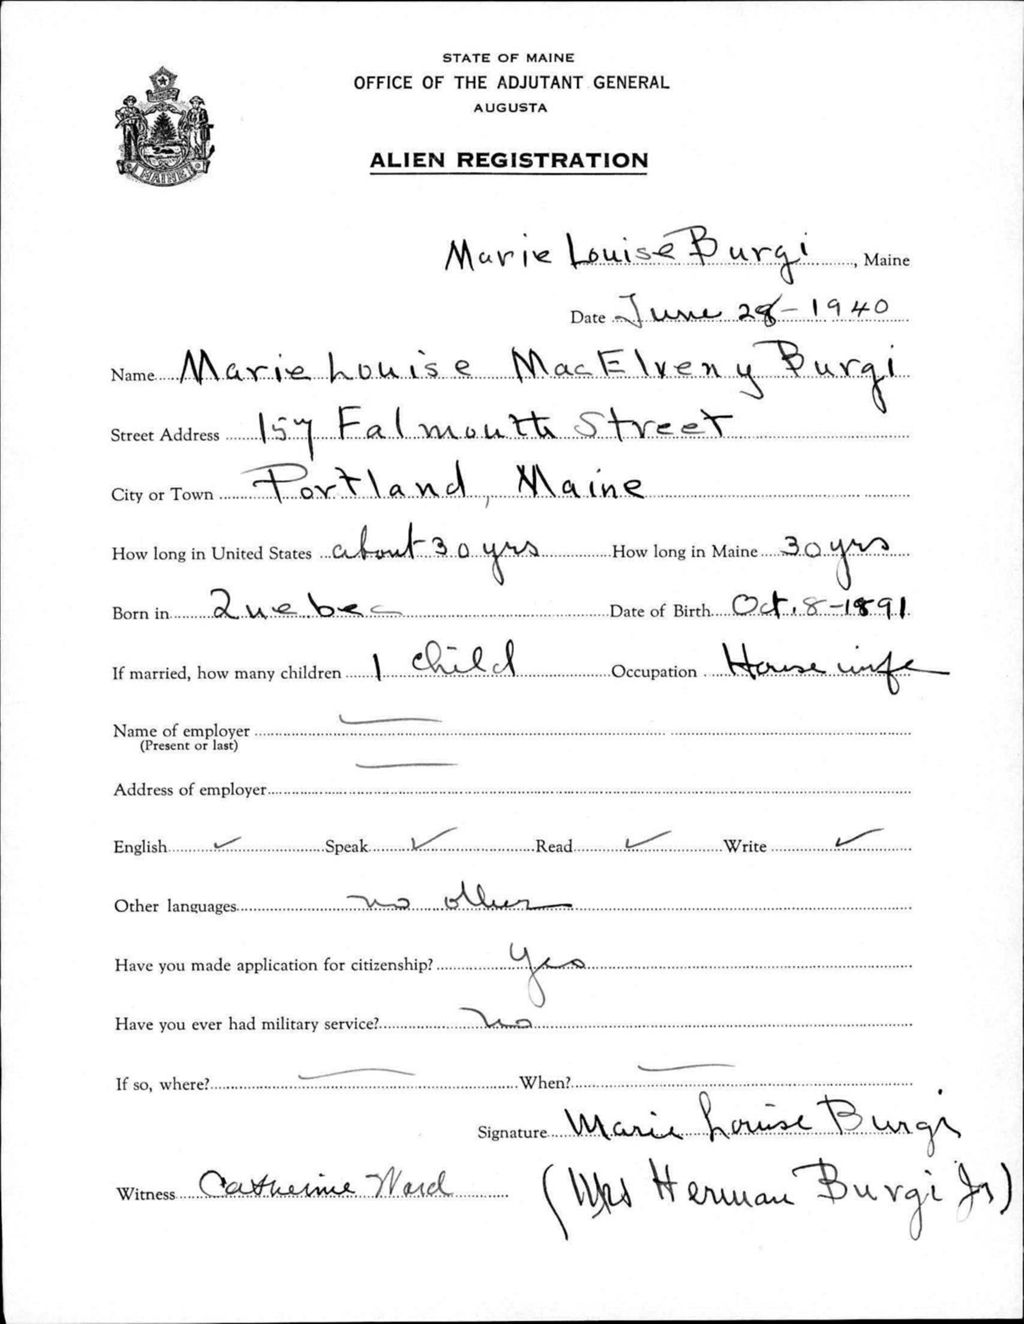 STATE OF MAINE
OFFICE OF THE ADJUTANT GENERAL
AUGUSTA
MAINE
ALIEN REGISTRATION
Marie Louise Burgi, Maine
Date June 28-1940
Name Marie Louise MacElveny Burgi
Street Address 157 Falmouth Street
City or Town Portland, Maine
How long in United States about 30 yrs How long in Maine 30 yrs
Born in Quebec Date of Birth Oct. 8-1891
If married, how many children 1 child Occupation House wife
Name of employer
(Present or last)
Address of employer
English ✓ Speak ✓ Read ✓ Write ✓
Other languages no other
Have you made application for citizenship? Yes
Have you ever had military service? no
If so, where? When?
Signature Marie Louise Burgi
Witness Catherine Ward (Mrs Herman Burgi Jr)